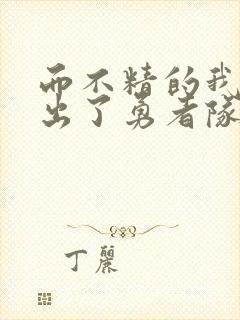 而不精的我
出了勇者隊
丁麗